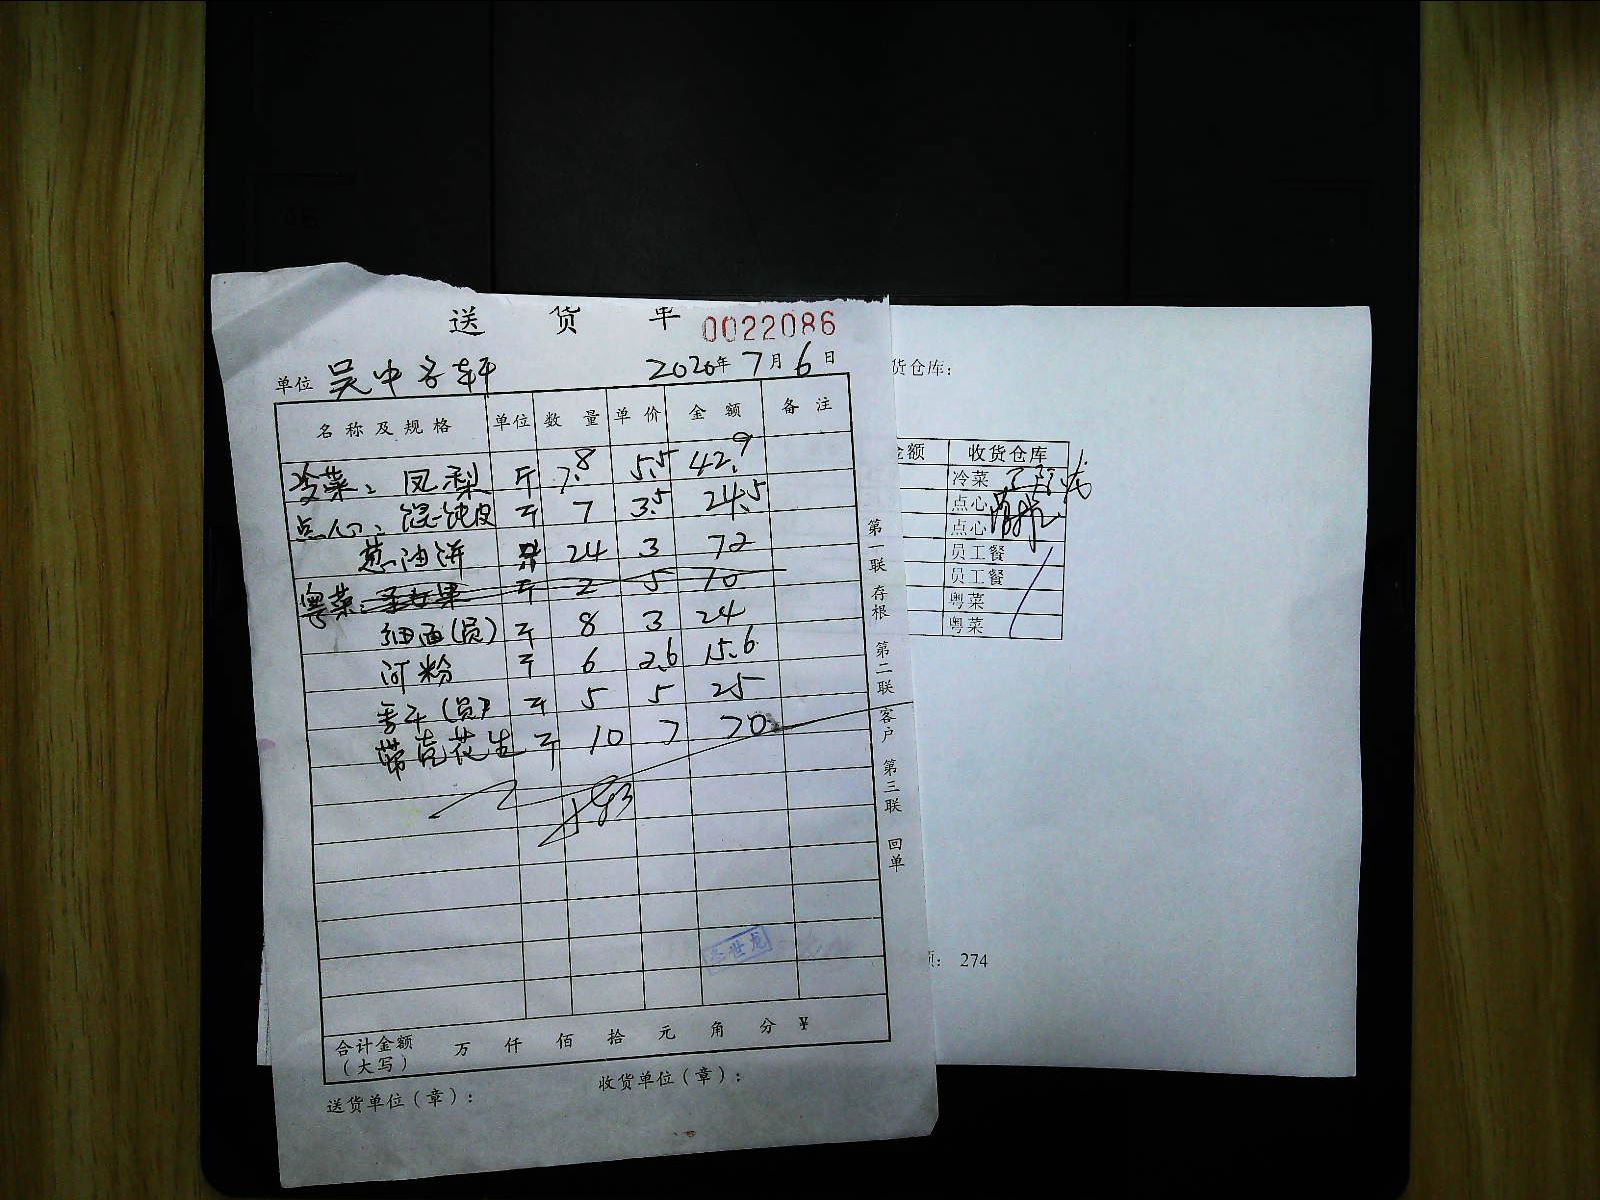 送 货 单 0022086
单位 吴中名轩 2020年 7月 6日
名称及规格 单位 数量 单价 金额 备注
冷菜: 凤梨 斤 7.8 5.5 42.9
点心: 馄饨皮 斤 7 3.5 24.5
葱油饼 24 3 72
粤菜: 圣女果 斤 2 5 10
细面(员) 斤 8 3 24
河粉 斤 6 2.6 15.6
(员) 斤 5 5 25
带壳花生 斤 10 7 70
合计金额 万 仟 佰 拾 元 角 分 ¥
(大写)
送货单位(章): 收货单位(章):
第一联 存根 第二联 客户 第三联 回单
货仓库:
金额 收货仓库
冷菜
点心
点心
员工餐
员工餐
粤菜
粤菜
274